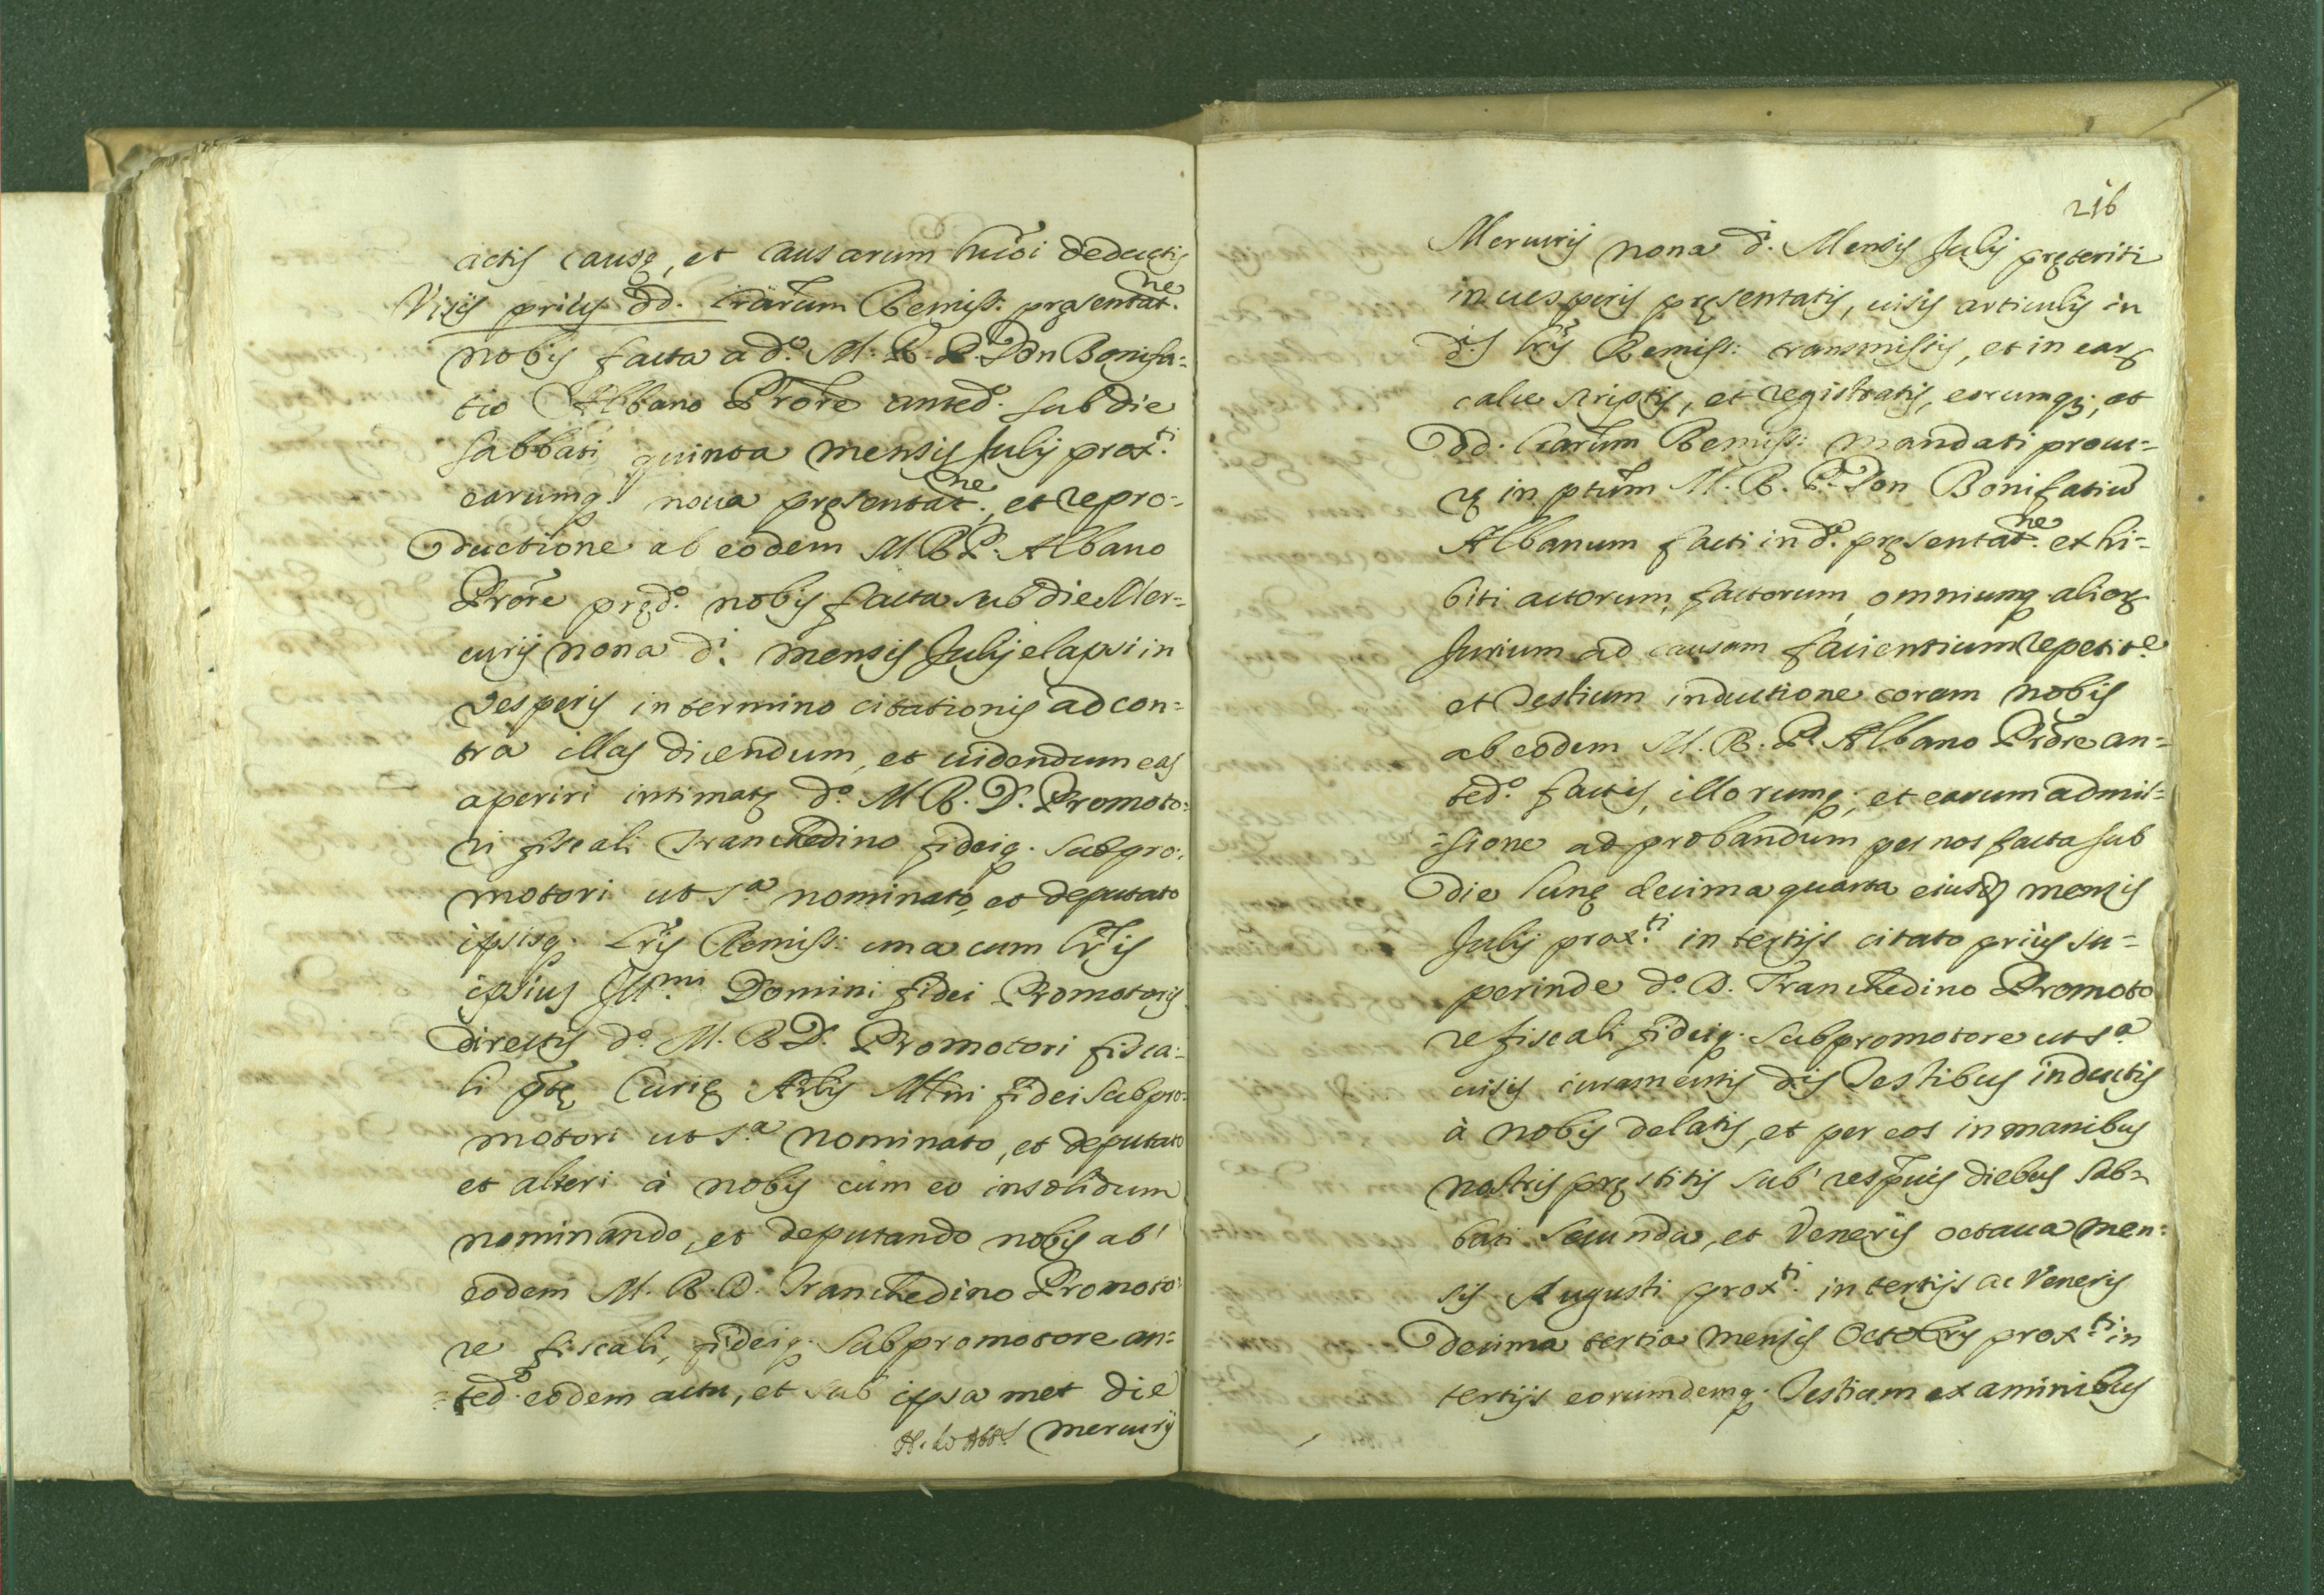 actis causę, et causarum huiõi deductis
Visis priùs dd. Lrãrum Remiss: pręsentat.ne
nobis facta a d.º M. R. P. Don Bonifa=
tio Albano Prõre anted.º sub die
sabbati quinta mensis Julij prox.ti
earumq. noua pręsentat.ne, et repro=
ductione ab eodem M. R. P. Albano
Prõre pręd.º nobis facta sub die Mer=
curij nona d.i mensis Julij elapsi in
Vesperis in termino citationis ad con=
tra illas dicendum, et uidendum eas
aperiri intimatę d.º M. R. D. Promoto=
ri fiscali Tranchedino fideiq. subpro=
motori ut s.a nominato, et deputato
ipsisq. Lr̃is Remiss: una cum Lr̃is
ipsius Ill.mi Domini fidei Promotoris
directis d.º M. R. D. Promotori fisca=
li pñtę Curię Arlis Mlñi fidei subpro=
motori ut s.a nominato, et deputato
et alteri à nobis cùm eo insolidum
nominando, et deputando nobis ab
eodem M. R. D. Tranchedino Promoto
re fiscali, fideiq. subpromotore an=
=ted.º eodem actu, et sub ipsa met die
Mercurij
216
Mercurij nona d.i Mensis Julij pręteriti
in uesperis pręsentatis, uisis articulis in
d.s Lr̃is Remiss: transmissis, et in earꝝ
calce scriptis, et registratis, eorumq3, et
dd. Lrãrum Remiss: mandati procu=
ę in ptũm M. R. P. Don Bonifatiũ
Albanum facti in d.a pręsentat.ne exhi=
biti actorum, factorum, omniumq. alioꝝ
Jurium ad causam facientium repetit.e
et Testium inductione coram nobis
ab eodem M. R. P. Albano Prõre an=
ted.º factis, illorumq., et earum admis=
=sione ad probandum per nos facta sub
die lunę decima quarta eiusd. mensis
Julij prox.ti in tertijs citato priùs su=
perinde d.º D. Tranchedino Promoto
re fiscali fideiq. subpromotore ut s.a
uisis iuramentis d.is Testibus inductis
à nobis delatis, et per eos in manibus
nostris pręstitis sub respũis diebus sab=
bati secunda, et Veneris octaua men=
sis Augusti prox.ti in tertijs ac Veneris
decima tertia mensis Octobris prox.ti in
tertijs eorumdemq. Testium examinibus